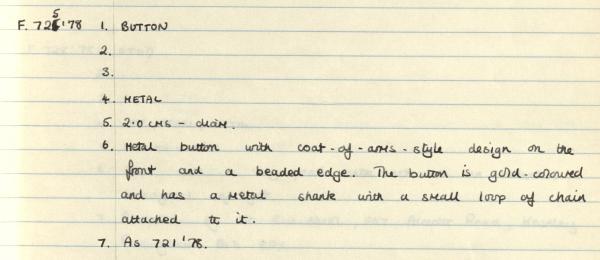 F. 725'78 1. BUTTON
2.
3.
4. METAL
5. 2.0 CMS - diam.
6. Metal button with coat-of-arms-style design on the
front and a beaded edge. The button is gold-coloured
and has a metal shank with a small loop of chain
attached to it.
7. As 721'78.